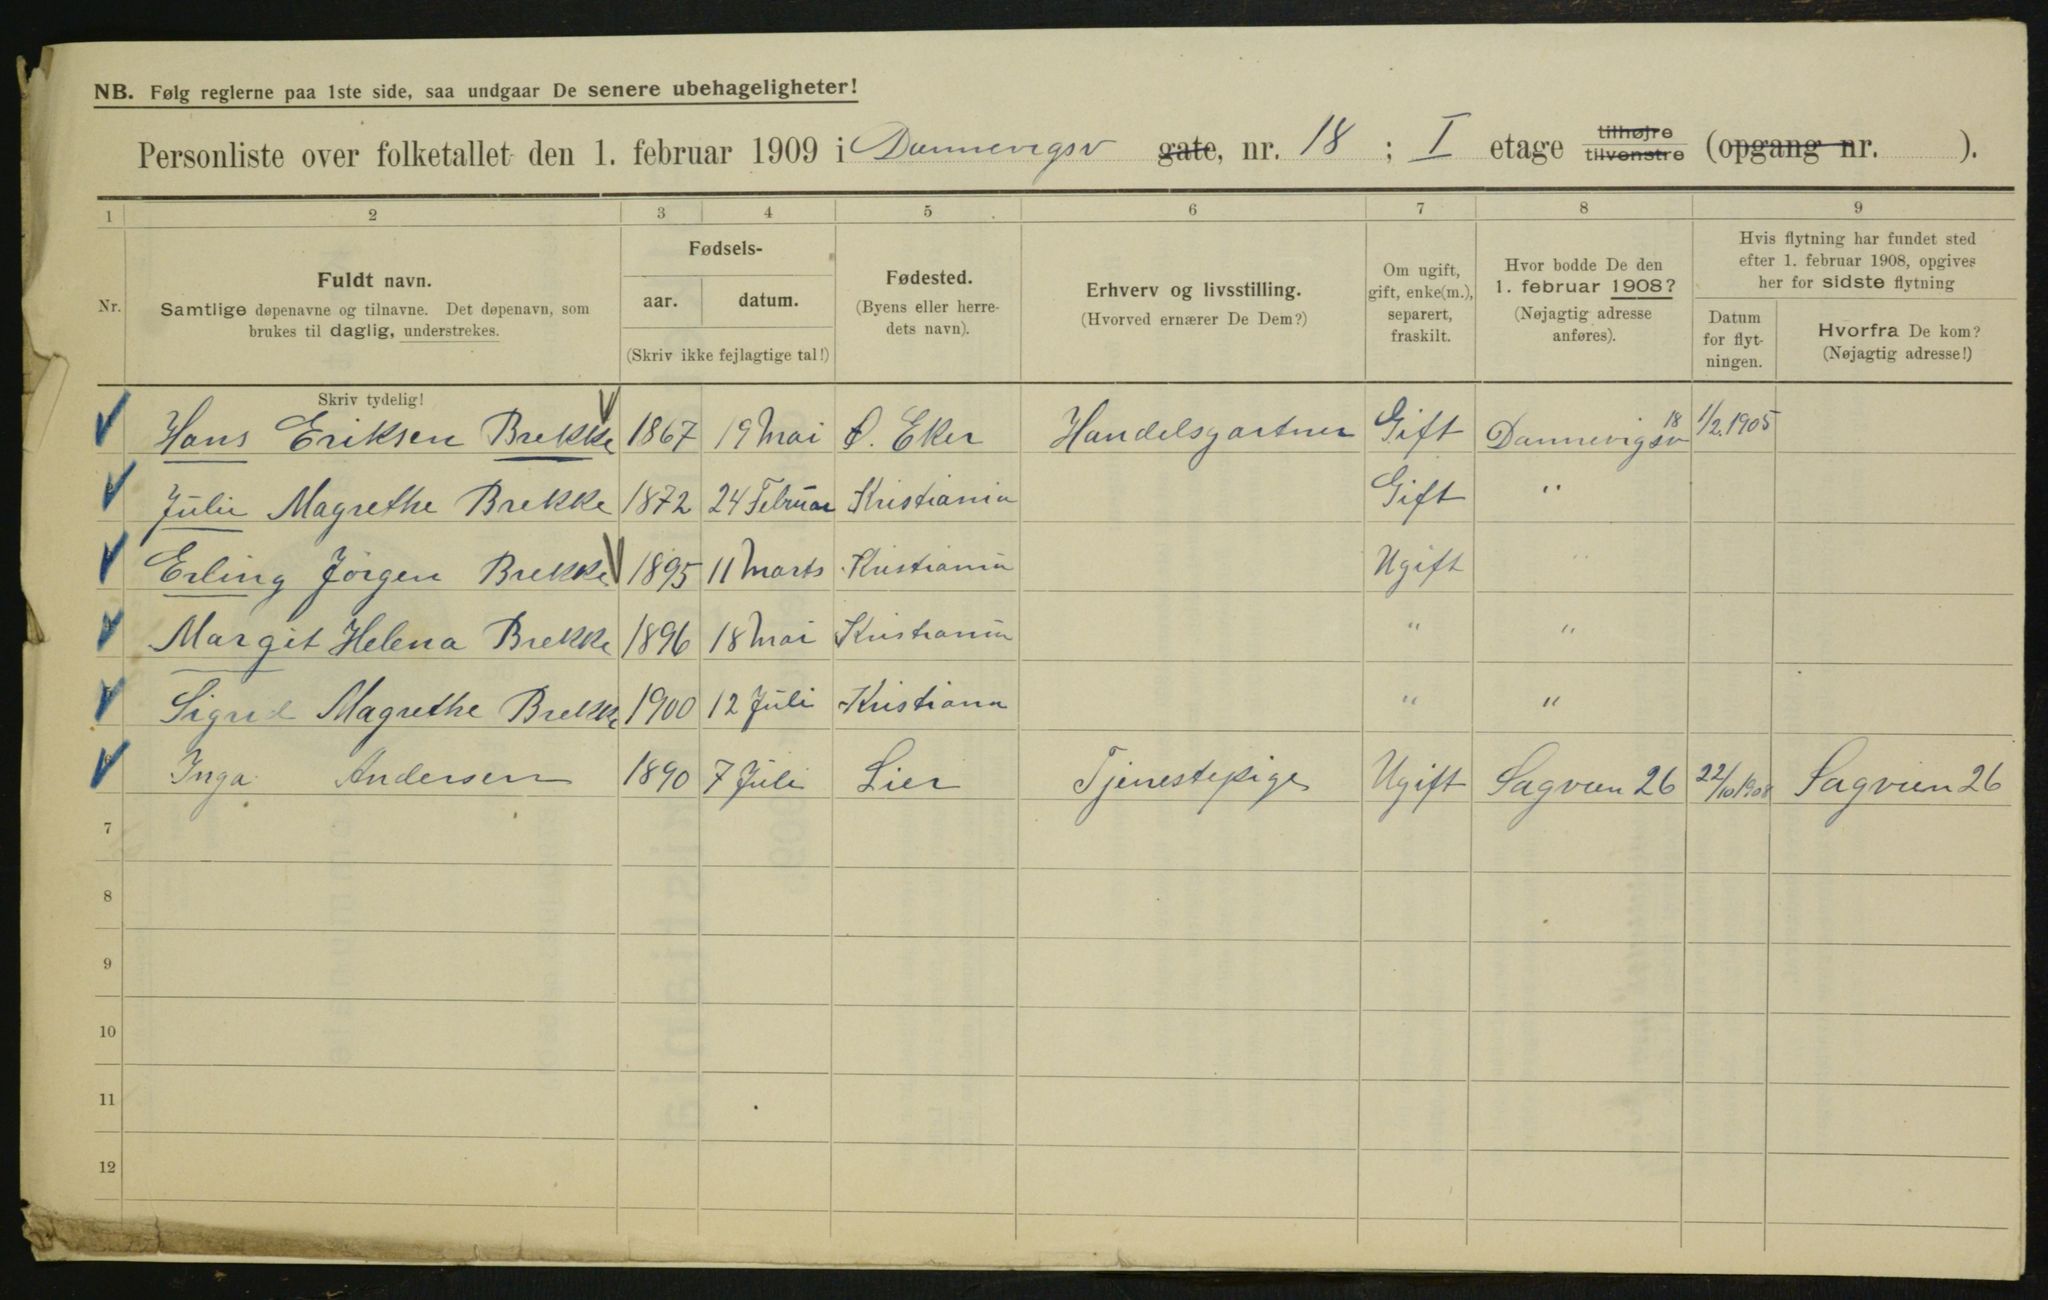 NB. Følg reglerne paa 1ste side, saa undgaar De senere ubehageligheter!
Personliste over folketallet den 1. februar 1909 i Dannevigsv gate, nr. 18 ; I etage tilhøjre tilvenstre (opgang nr. ).
1 2 3 4 5 6 7 8 9
Nr.
Fuldt navn.
Samtlige døpenavne og tilnavne. Det døpenavn, som
brukes til daglig, understrekes.
Fødsels-
aar. datum.
(Skriv ikke fejlagtige tal!)
Fødested.
(Byens eller herre-
dets navn).
Erhverv og livsstilling.
(Hvorved ernærer De Dem?)
Om ugift,
gift, enke(m.),
separert,
fraskilt.
Hvor bodde De den
1. februar 1908?
(Nøjagtig adresse
anføres).
Hvis flytning har fundet sted
efter 1. februar 1908, opgives
her for sidste flytning
Datum
for flyt-
ningen.
Hvorfra De kom?
(Nøjagtig adresse!)
Skriv tydelig!
Hans Eriksen Brekke 1867 19 Mai Ø. Eker Handelsgartner Gift Dannevigsv 18 1/2.1905
Julie Magrethe Brekke 1872 24 Februar Kristiania Gift "
Erling Jørgen Brekke 1895 11 Marts Kristiania Ugift "
Margit Helena Brekke 1896 18 Mai Kristiania " "
Sigrid Magrethe Brekke 1900 12 Juli Kristiana " "
Inga Andersen 1890 7 Juli Lier Tjenestepige Ugift Sagvien 26 22/10 1908 Sagvien 26
7
8
9
10
11
12